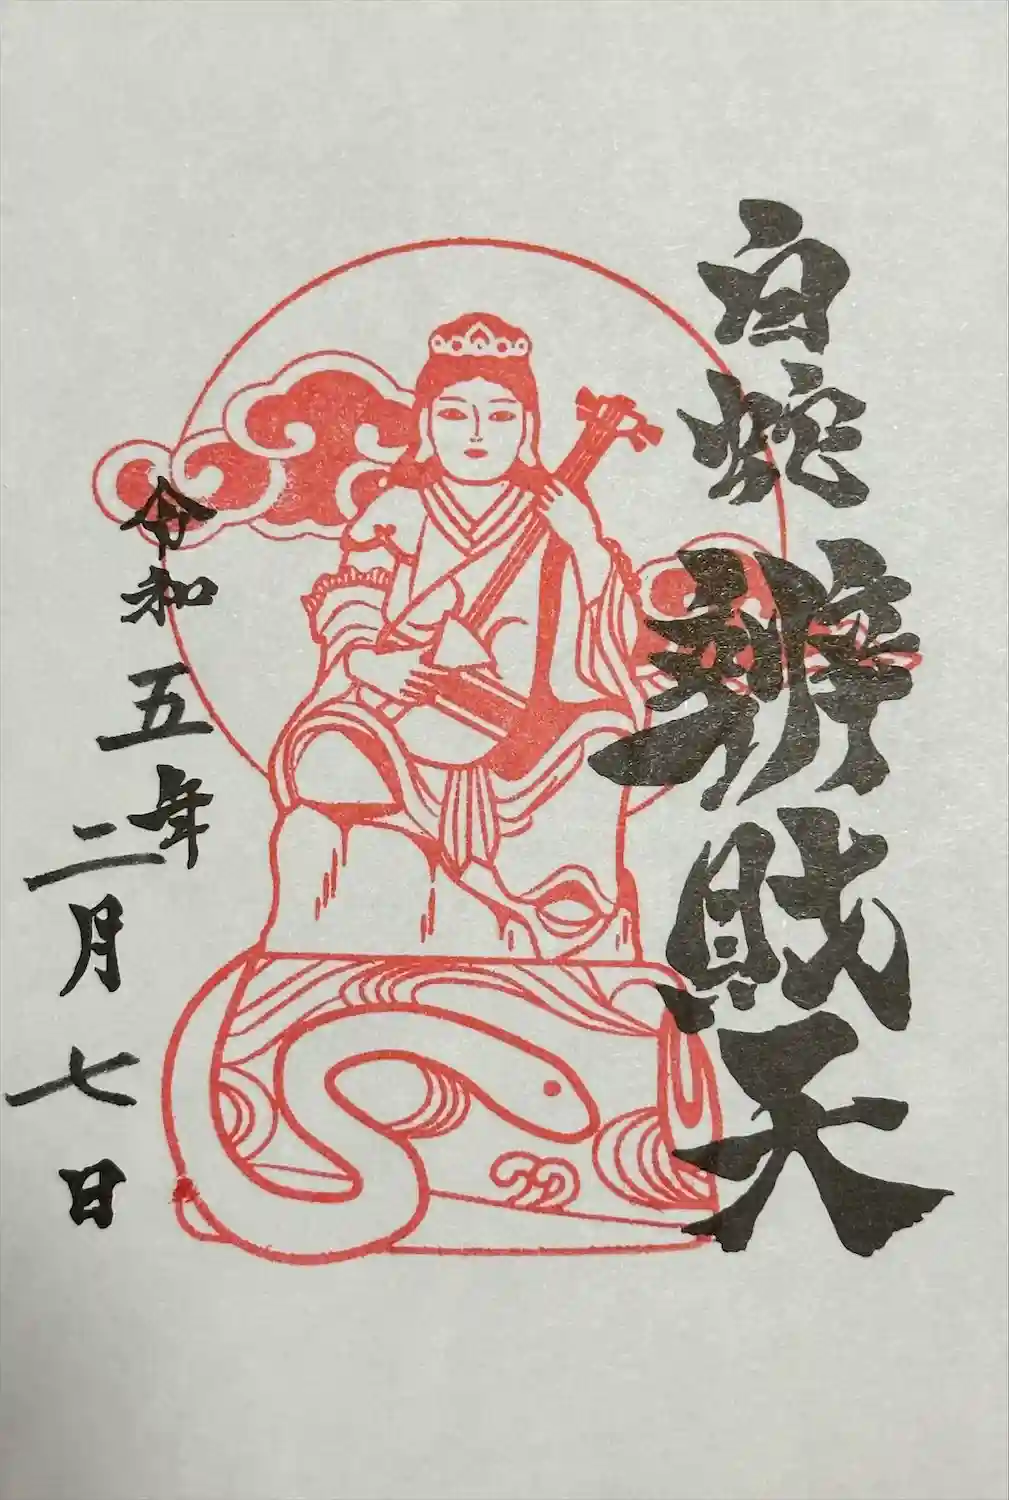 白蛇辨財天
令和五年
二月七日